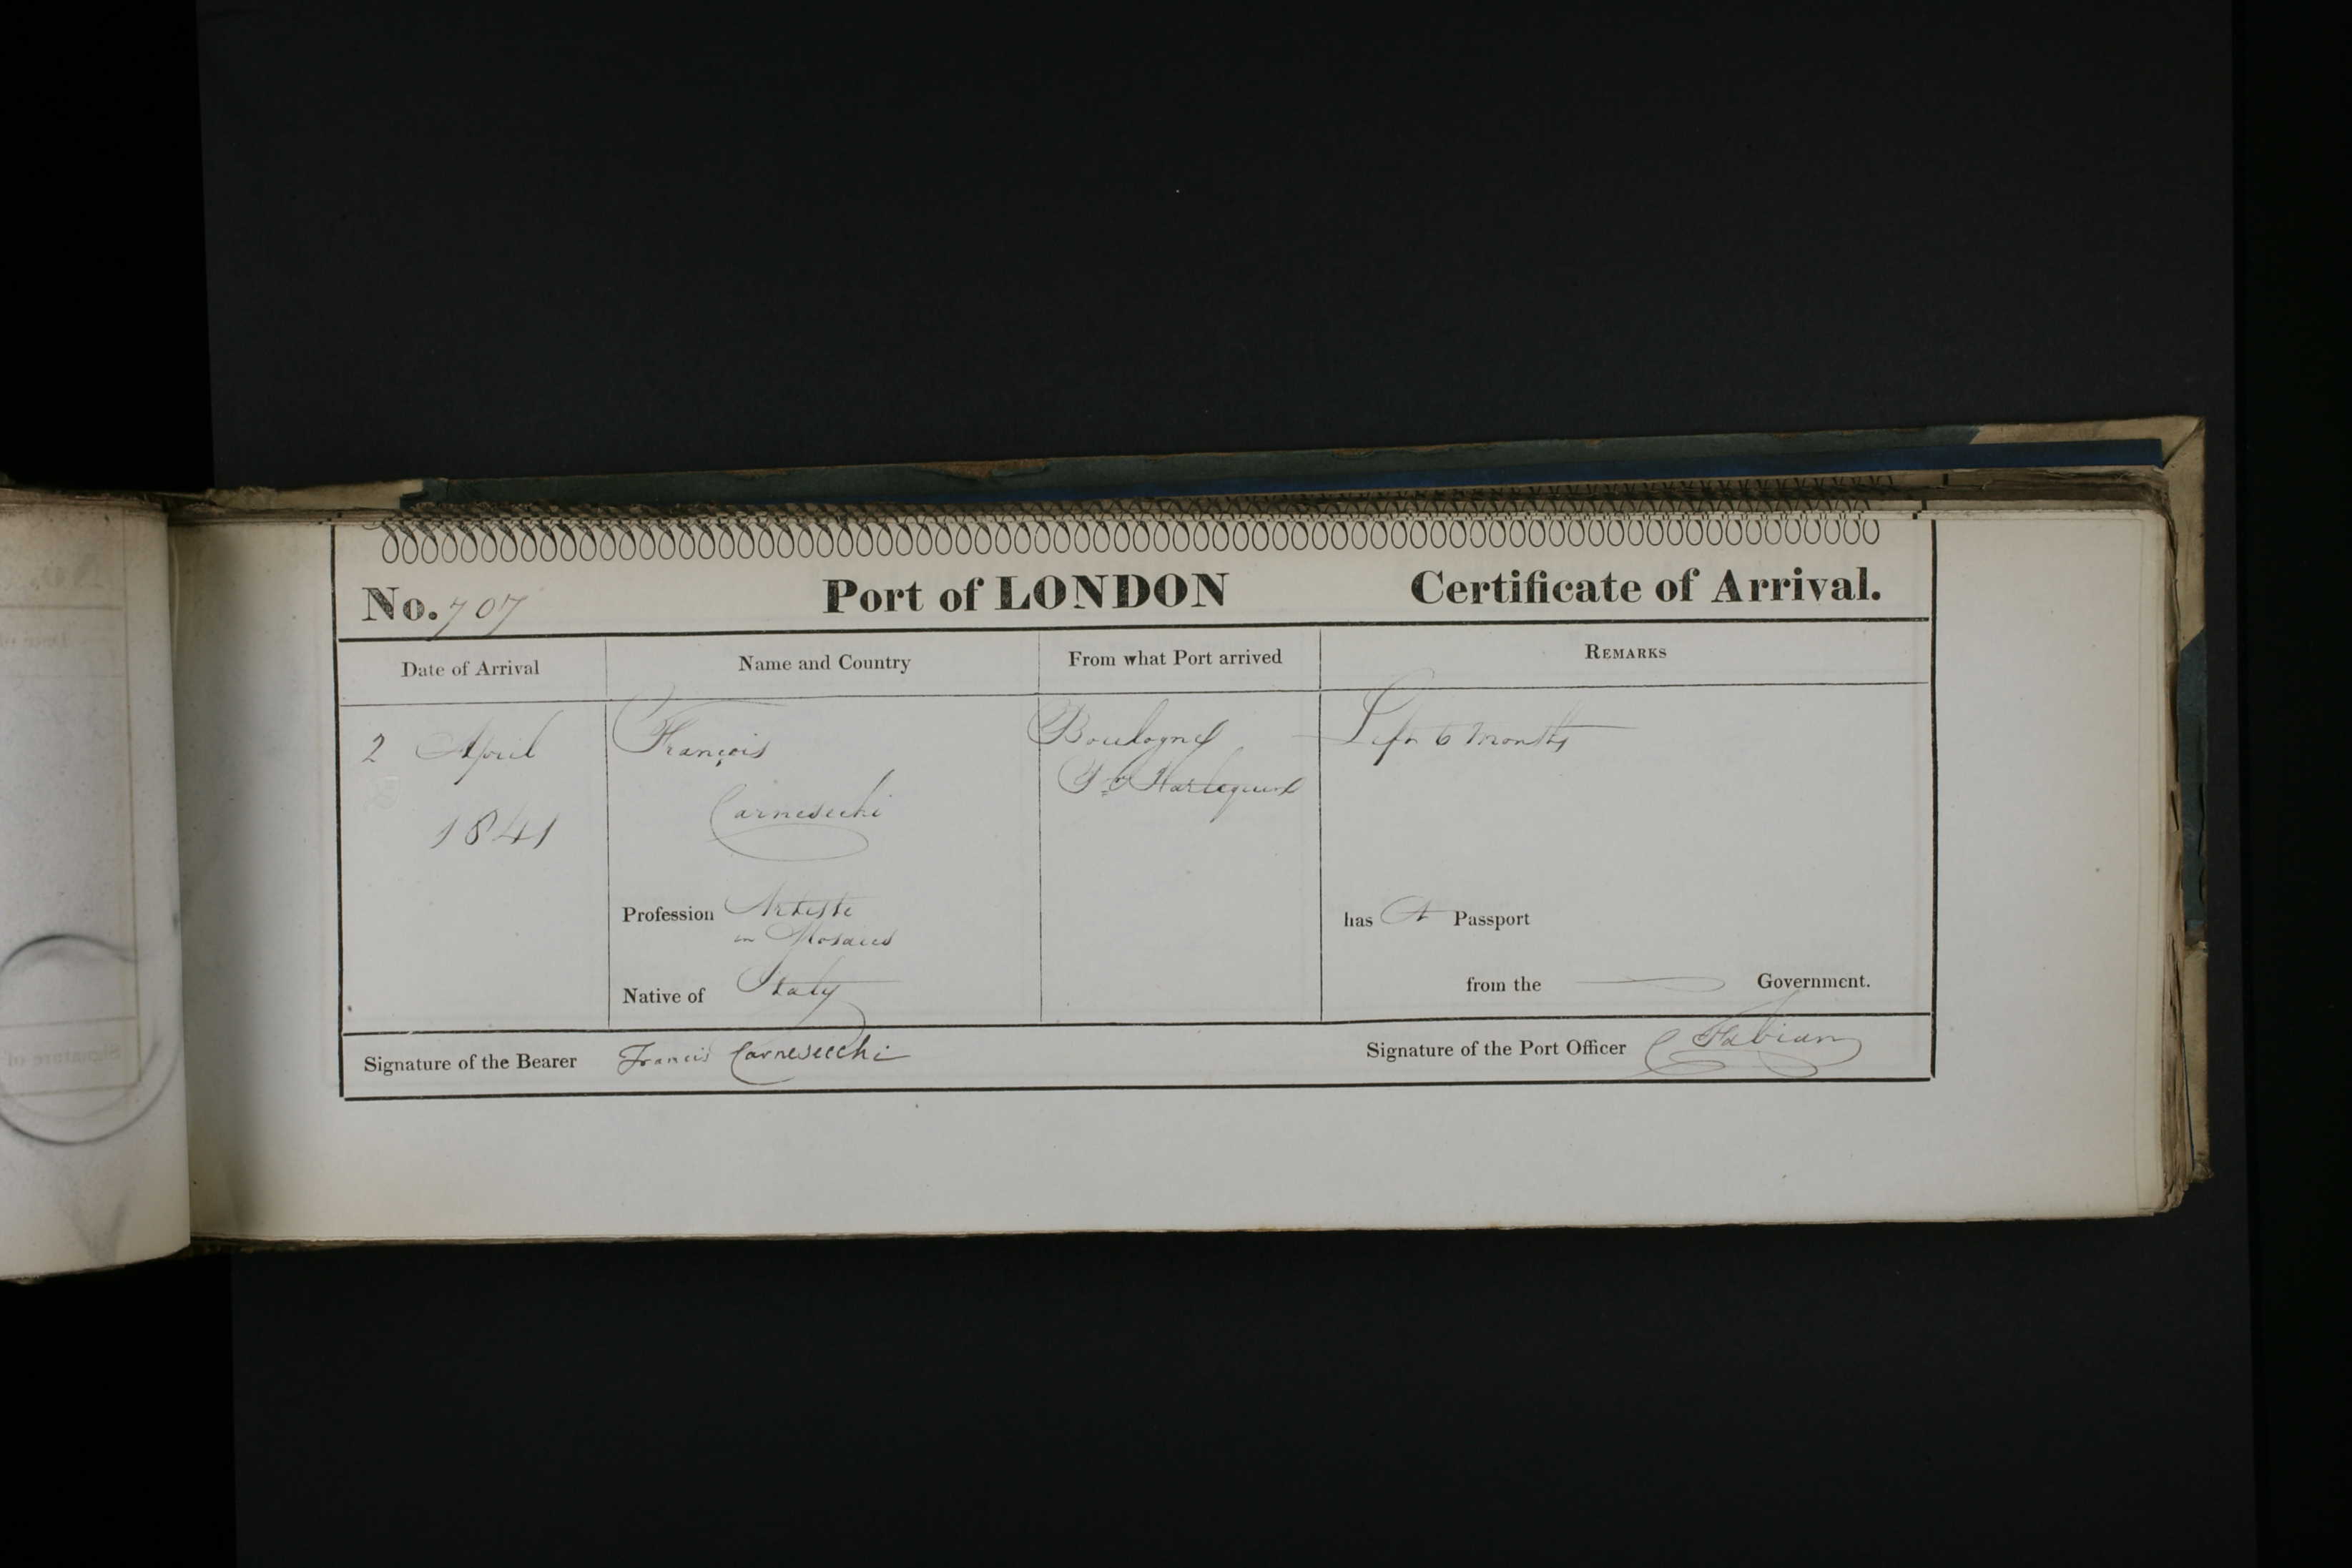 No. 707 Port of LONDON Certificate of Arrival.
Date of Arrival Name and Country From what Port arrived REMARKS
2 April François Boulogne Left 6 Months
Harlequin
1841 Carnesecchi
Profession Artiste has A Passport
in Mosaics
Native of Italy from the Government.
Signature of the Bearer Francis Carnesecchi Signature of the Port Officer C Fabian